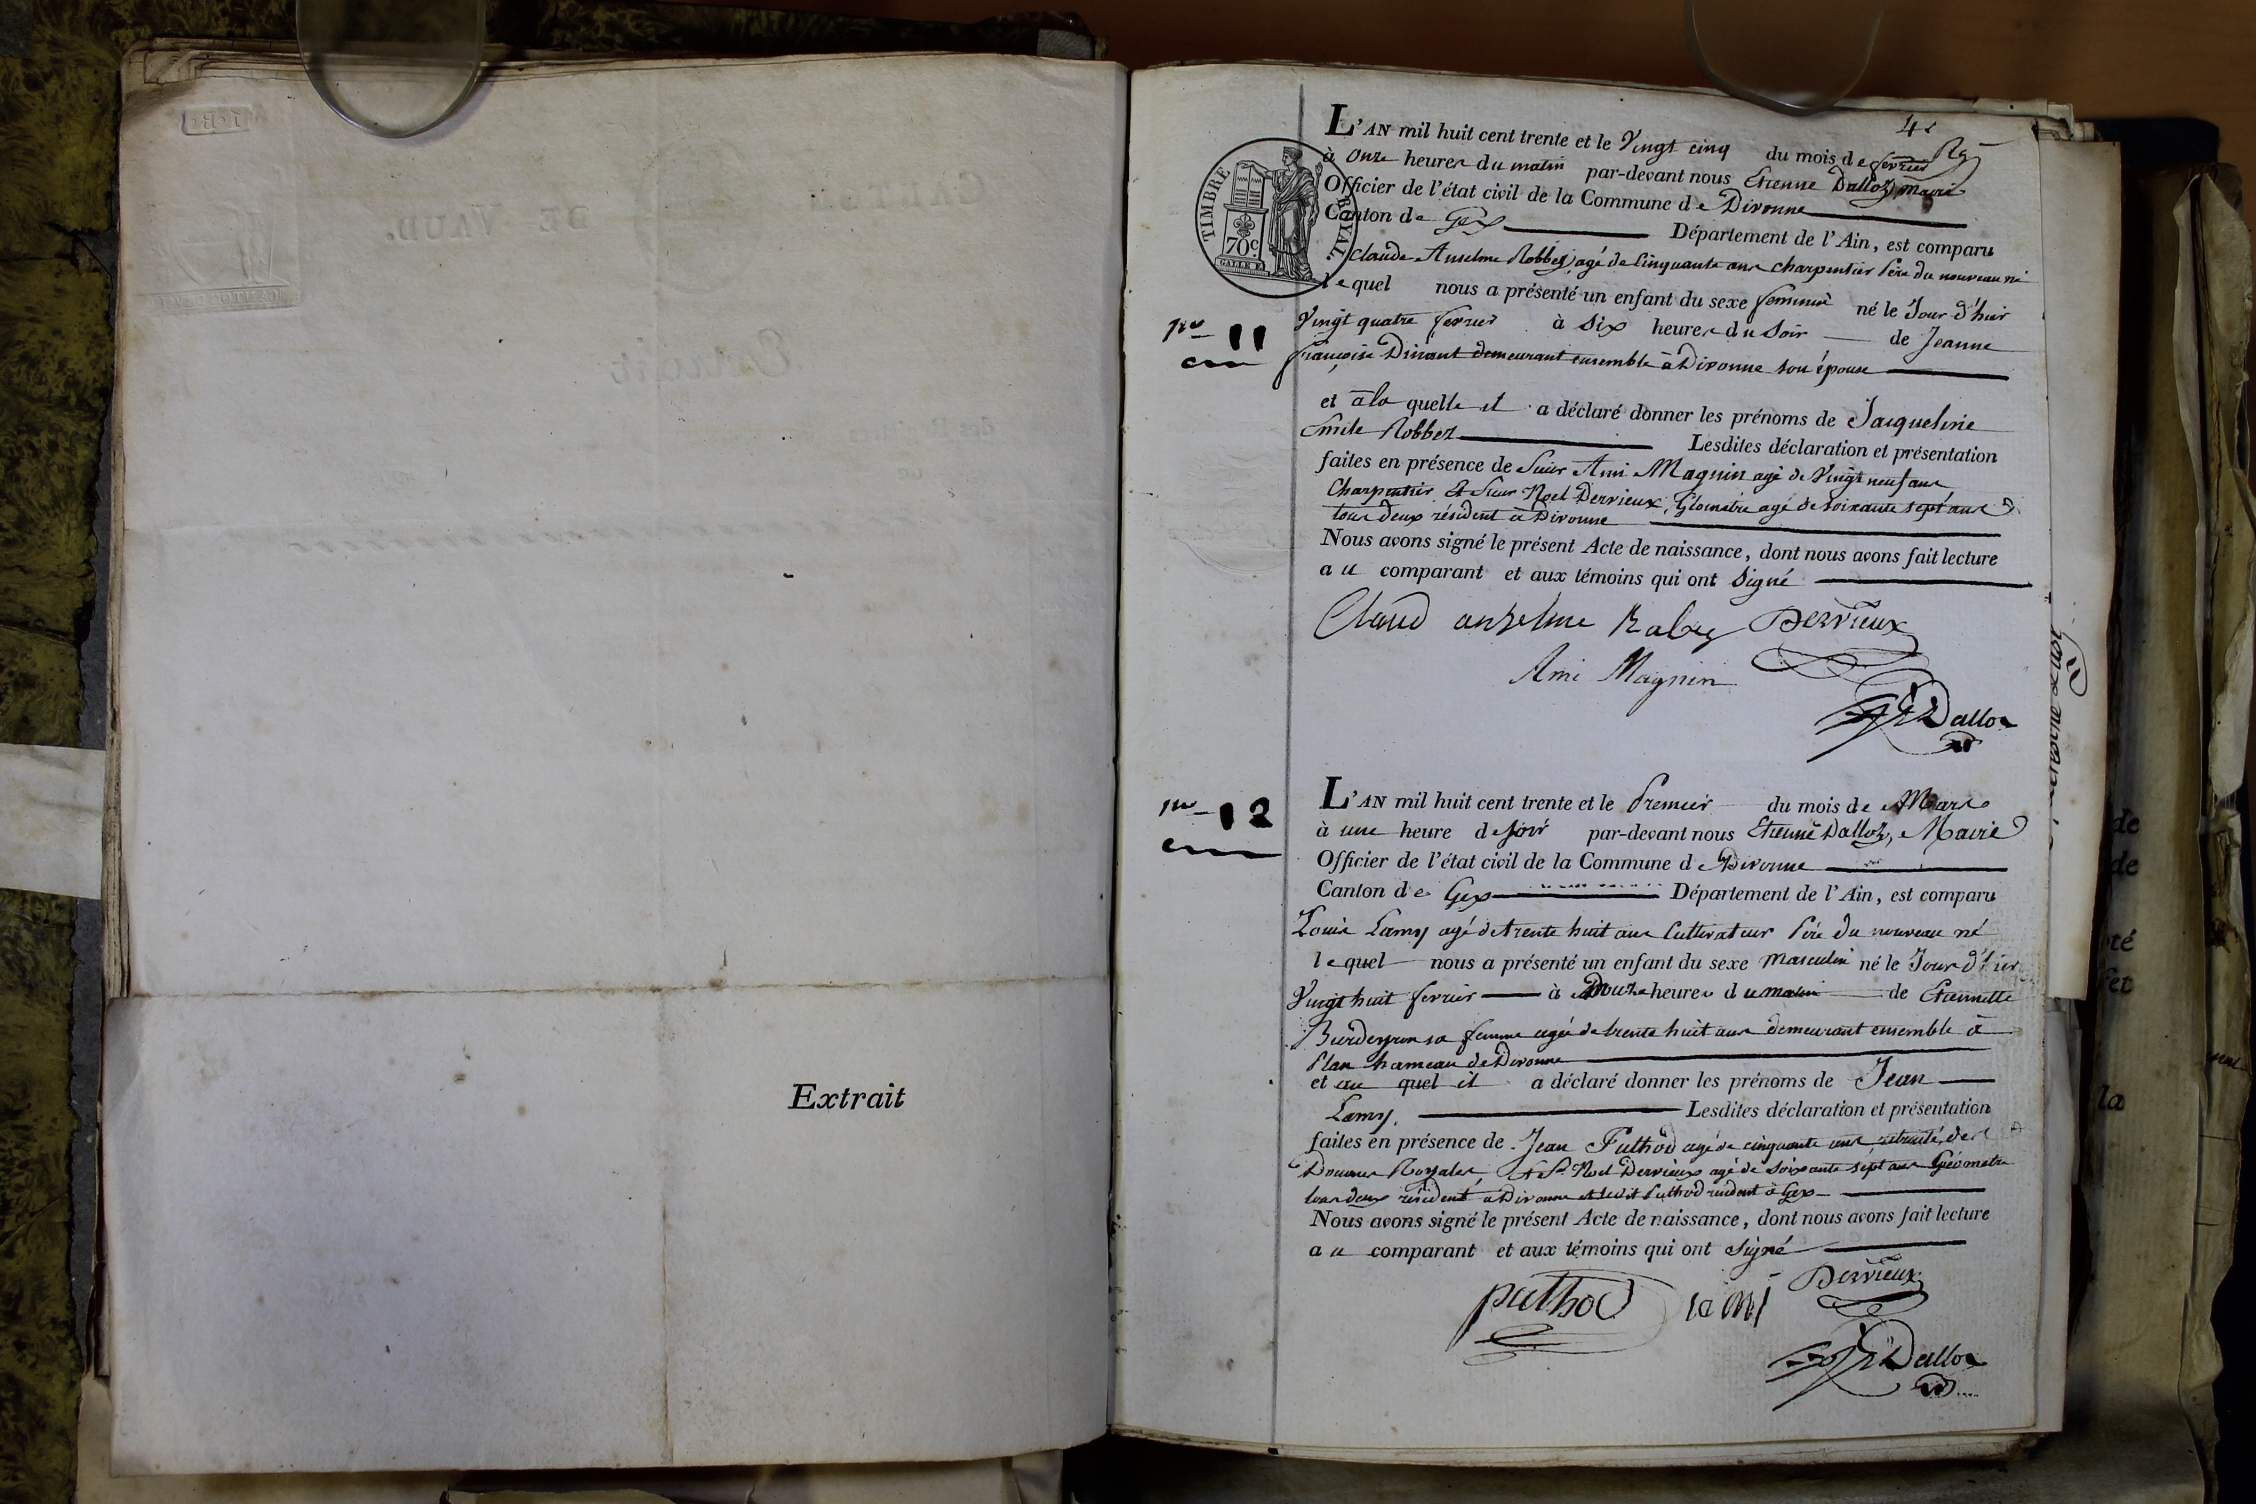 Extrait
4e
L'AN mil huit cent trente et le Vingt cinq du mois de fevrier
à onze heures du matin par-devant nous Etienne Dalloz, Maire
Officier de l'état civil de la Commune de Divonne
Canton de Gex Département de l'Ain, est comparu
TIMBRE ROYAL.
70c.
Claude Anselme Robbez, agé de Cinquante ans charpentier Père du nouveau né
lequel nous a présenté un enfant du sexe feminin né le Jour d'hier
No 11
Vingt quatre fevrier à Six heures du Soir de Jeanne
françoise Divant demeurant ensemble à Divonne son épouse
et à la quelle il a déclaré donner les prénoms de Jacqueline
Emile Robbez Lesdites déclaration et présentation
faites en présence de Sieur Ami Magnin agé de Vingt neuf ans
Charpentier et Sieur Noel Dervieux, Géometre agé de soixante sept ans
tous deux résident à Divonne
Nous avons signé le présent Acte de naissance, dont nous avons fait lecture
au comparant et aux témoins qui ont Signé
Claud anselme Robez Dervieux
Ami Magnin
Dalloz
No 12
L'AN mil huit cent trente et le Premier du mois de Mars
à une heure de soir par-devant nous Etienne Dalloz, Maire
Officier de l'état civil de la Commune de Divonne
Canton de Gex Département de l'Ain, est comparu
Louis Lamy agé de trente huit ans Cultivateur Père du nouveau né
lequel nous a présenté un enfant du sexe Masculin né le Jour d'hier
Vingt huit fevrier à Douze heures du matin de Etiennette
Burdeyron sa femme agée de trente huit ans demeurant ensemble à
Plan hameau de Divonne
et au quel il a déclaré donner les prénoms de Jean
Lamy. Lesdites déclaration et présentation
faites en présence de Jean Puthod agé de cinquante ans retraité des
Douanes Royales, et Sr Noel Dervieux agé de Soixante sept ans Géometre
tous deux résident à Divonne et ledit Puthod résident à Gex
Nous avons signé le présent Acte de naissance, dont nous avons fait lecture
au comparant et aux témoins qui ont signé
Dervieux
puthod lami
Dalloz